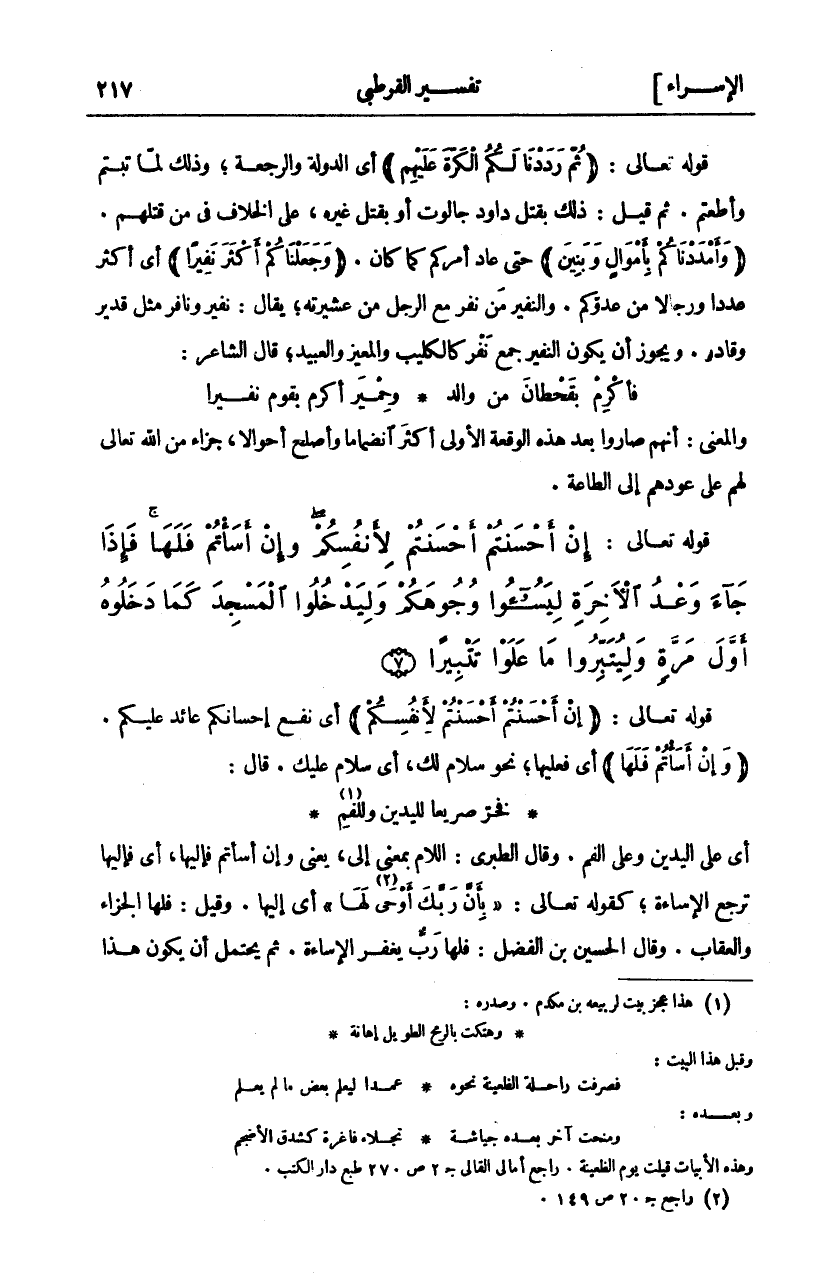 الإســـراء ] تفســـير القرطبي ٢١٧
قوله تعـالى : ﴿ ثُمَّ رَدَدْنَا لَـكُمُ الْكَرَّةَ عَلَيْهِم ﴾ أى الدولة والرجعـة ؛ وذلك لمّا تبـتم
وأطعتم . ثم قيـل : ذلك بقتل داود جالوت أو بقتل غيره ، على الخلاف فى من قتلهـم .
﴿ وَأَمْدَدْنَاكُمْ بِأَمْوَالٍ وَبَنِينَ ﴾ حتى عاد أمركم كما كان . ﴿ وَجَعَلْنَاكُمْ أَكْثَرَ نَفِيرًا ﴾ أى أكثر
عددا ورجالا من عدوّكم . والنفير مَن نفر مع الرجل من عشيرته؛ يقال : نفير ونافر مثل قدير
وقادر . ويجوز أن يكون النفير جمع نَفْر كالكليب والمعيز والعبيد؛ قال الشاعر :
فأكْرِمْ بقَحْطانَ من والد * وحِمْيَر أكرم بقوم نفـــيرا
والمعنى : أنهم صاروا بعد هذه الوقعة الأولى أكثرَ آنضماما وأصلح أحوالا، جزاء من الله تعالى
لهم على عودهم إلى الطاعة .
قوله تعـالى : إِنْ أَحْسَنتُمْ أَحْسَنتُمْ لِأَنفُسِكُمْ ۖ وَإِنْ أَسَأْتُمْ فَلَهَا ۚ فَإِذَا
جَآءَ وَعْدُ ٱلْأَخِرَةِ لِيَسُـۥٓـُٔوا وُجُوهَكُمْ وَلِيَدْخُلُوا ٱلْمَسْجِدَ كَمَا دَخَلُوهُ
أَوَّلَ مَرَّةٍ وَلِيُتَبِّرُوا مَا عَلَوْا تَتْبِيرًا ﴿٧﴾
قوله تعـالى : ﴿ إِنْ أَحْسَنْتُمْ أَحْسَنْتُمْ لِأَنْفُسِـكُمْ ﴾ أى نفـع إحسانكم عائد عليـكم .
﴿ وَإِنْ أَسَأْتُمْ فَلَهَا ﴾ أى فعليها؛ نحو سلام لك، أى سلام عليك . قال :
* فخـرّ صريعا لليدين وللفمِ (١) *
أى على اليدين وعلى الفم . وقال الطبرى : اللام بمعنى إلى، يعنى وإن أسأتم فإليها، أى فإليها
ترجع الإساءة ؛ كقوله تعـالى : « بِأَنَّ رَبَّكَ أَوْحَى لَهَا » (٢) أى إليها . وقيل : فلها الجزاء
والعقاب . وقال الحسين بن الفضل : فلها رَبٌّ يغفـر الإساءة . ثم يحتمل أن يكون هـذا
(١) هذا عجز بيت لربيعه بن مكدم . وصدره :
* وهتكت بالرمح الطويل إهانة *
وقبل هذا البيت :
فصرفت راحـلة الظعينة نحوه * عمـدا ليعلم بعض ما لم يعـلم
وبعـــده :
ومنحت آخر بعـده جياشـة * نجـلاء فاغرة كشدق الأضجم
وهذه الأبيات قيلت يوم الظعينة . راجع أمالى القالى جـ ٢ ص ٢٧٠ طبع دار الكتب .
(٢) راجع جـ ٢٠ ص ١٤٩ .